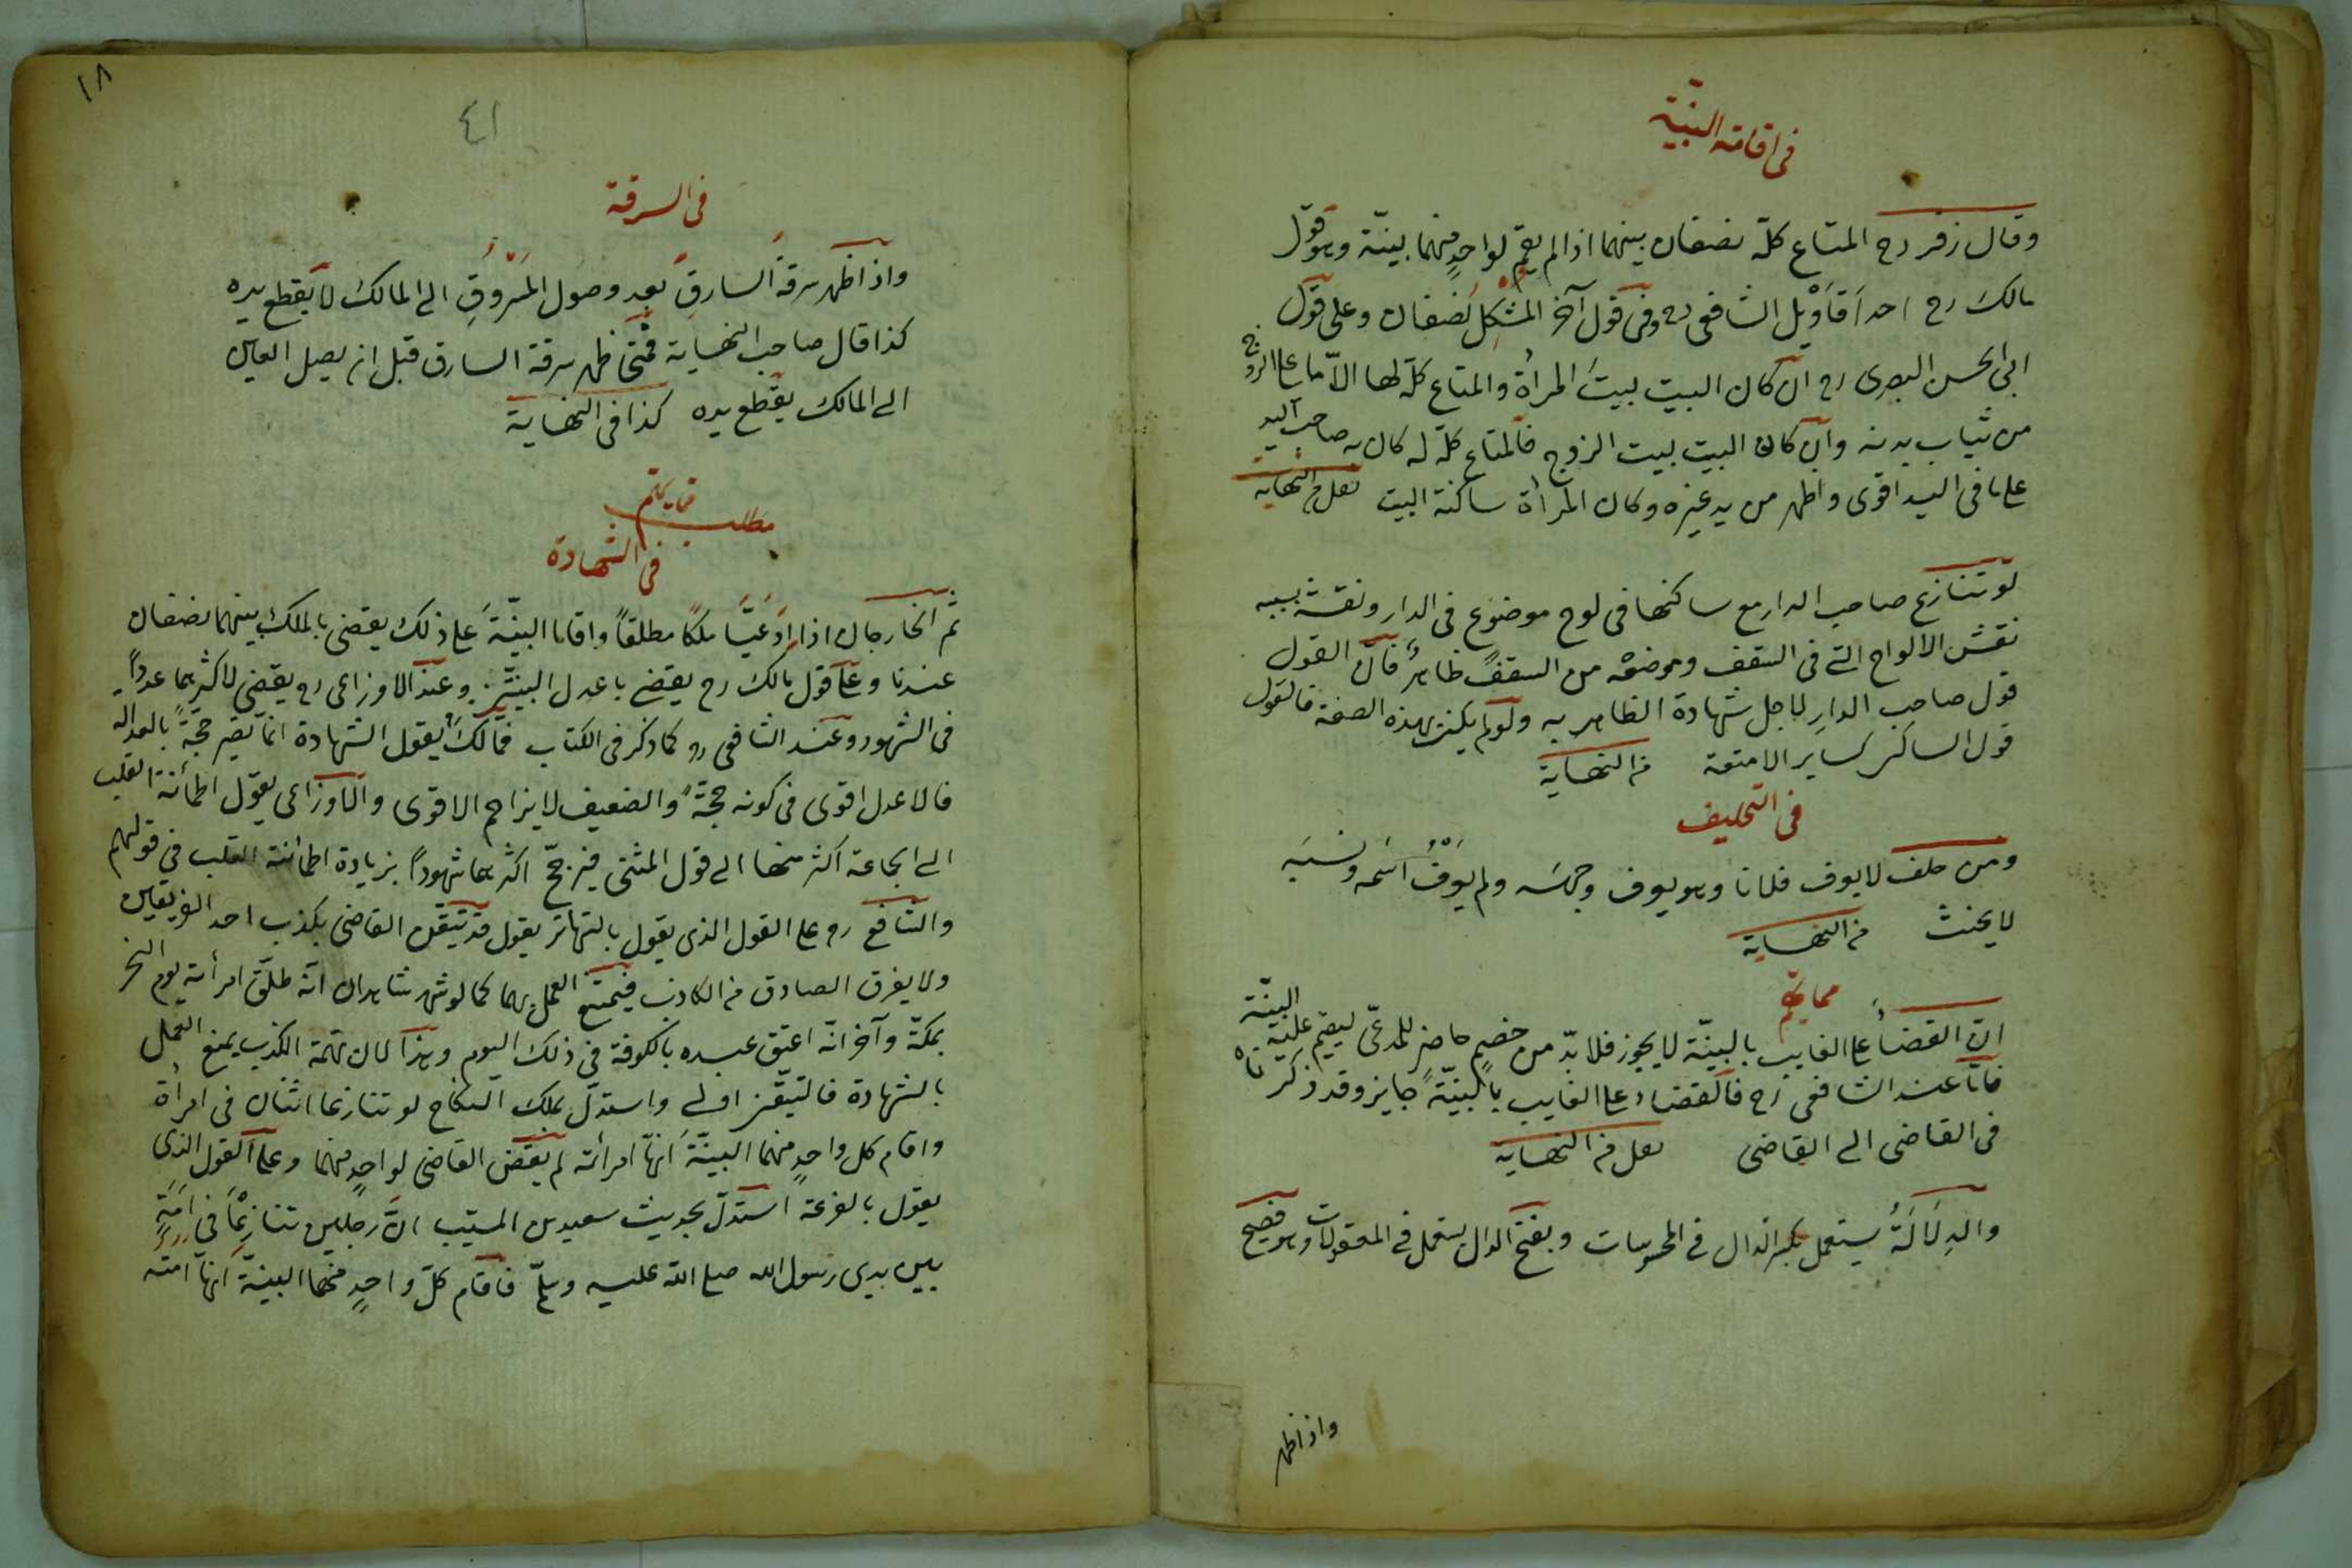 في اقامة البيّنة
وقال زفر رح المتاع كلّه نصفان بينهما اذا لم يقم لواحدٍ منهما بيّنة وهو قول
مالك رح احد اَقَاوْيل الشافعى رح وفى قول آخر المشكِل نصفان وعلى قول
ابى الحسن البصرى رح ان كان البيت بيتَ المرأة والمتاع كلّه لها الاّ ما على الزوج
من ثياب بدنه وان كان البيت بيت الزوج فالمتاع كلّه له كان صاحب اليد
على ما فى اليد اقوى واظهر من يد غيره وكان المرأة ساكنة البيت نقل من النهاية
لو تنازع صاحب الدار مع ساكنها فى لوح موضوع فى الدار ونقشه يشبه
نقش الالواح التى فى السقف وموضعه من السقف ظاهرٌ فانّ القول
قول صاحب الدارِ لاجل شهادة الظاهر به ولو لم يكن بهذه الصفة فالقول
قول الساكن كساير الامتعة من النهاية
فى التحليف
ومن حلف لا يعرف فلانا وهو يعرف وجهَه ولم يعرف اسمَه ونسبَه
لا يحنث من النهاية
مما يهم
انّ القضاءَ على الغايب بالبيّنة لا يجوز فلا بدّ من خصمٍ حاضر للمدعّى ليقيم عليه البيّنة
فامّا عند الشافعى رح فالقضاء على الغايب بالبيّنة جايز وقد ذكرناه
فى القاضى الى القاضى نقل من النهاية
والدِلَالَةُ يستعمل بكسر الدال فى المحسوسات وبفتح الدال يستعمل فى المعقولات وهو فصيح
واذا ظهر
١٨
٤١
فى السرقة
واذا ظهر سرقة السارقِ بعد وصول المَسْرُوقِ الى المالك لا يقطع يده
كذا قال صاحب النهاية فمتى ظهر سرقة السارق قبل ان يصل العين
الى المالك يقطع يده كذا فى النهاية
مطلب فيما يهتم
فى الشهادة
ثم الخارجان اذا ادّعيَا ملكًا مطلقاً واقاما البيّنةَ على ذلك يقضى بالملك بينهما نصفان
عندنا وعلى قول مالك رح يقضى باعدل البينتين وعند الاوزاعى رح يقضى لاكثرهما عدداً
فى الشهود وعند الشافعى رح كما ذكر فى الكتاب فمالكٌ يقول الشهادة انما تصير حجّةً بالعدالة
فالاعدل اقوى فى كونه حجّةً والضعيف لا يزاحم الاقوى والاوزاعى يقول اطمأنة القلب
الى الجماعة اكثر منها الى قول المثنى فيرجّح اكثرهما شهوداً بزيادة اطمأنة القلب فى قولهم
والشافعى رح على القول الذى يقول بالتهاتر يقول قد تيقّن القاضى بكذب احد الفريقين
ولا يعرف الصادق من الكاذب فيمتنع العمل بهما كما لو شهد شاهدان انّه طلّق امرأته يوم النحر
بمكّة وآخر انّه اعتق عبده بالكوفة فى ذلك اليوم وهذا لان تهمة الكذب يمنع العمل
بالشهادة فالتيقّن اولى واستدلّ بملك النكاح لو تنازعا اثنان فى امرأة
واقام كل واحدٍ منهما البيّنةَ انّها امرأته لم يقض القاضى لواحدٍ منهما وعلى القول الذى
يقول بالقرعة استدلّ بحديث سعيد بن المسيّب انّ رجلين تنازعَا فى امَةٍ
بين يدى رسول الله صلى الله عليه وسلّم فاقام كلّ واحدٍ منهما البينّةَ انّها امته